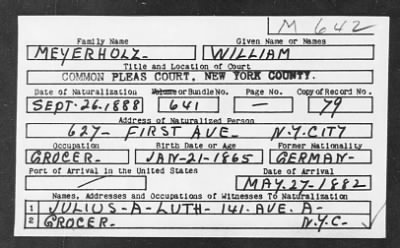 M 642
Family Name Given Name or Names
MEYERHOLZ- WILLIAM
Title and Location of Court
COMMON PLEAS COURT, NEW YORK COUNTY.
Date of Naturalization Volume or Bundle No. Page No. Copy of Record No.
SEPT-26-1888 641 — 79
Address of Naturalized Person
627- FIRST AVE- N.Y.CITY
Occupation Birth Date or Age Former Nationality
GROCER- JAN-21-1865 GERMAN-
Port of Arrival in the United States Date of Arrival
— MAY-27-1882
Names, Addresses and Occupations of Witnesses To Naturalization
1 JULIUS-A-LUTH- 141-AVE. A-
2 GROCER- N.Y.C-